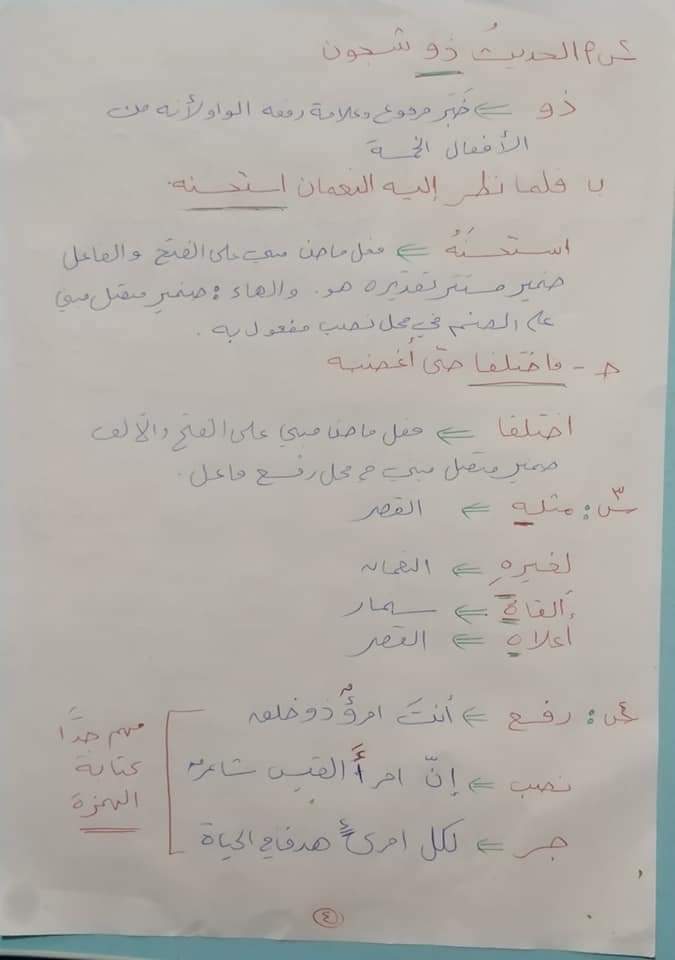 س٢ الحديثُ ذو شجون
ذو ⇐ خَبَر مرفوع وعلامة رفعه الواو لأنه من
الأفعال الخمسة
ب فلما نظر إليه النعمان استحسنه.
استحسَنَهُ ⇐ فعل ماضٍ مبني على الفتح والفاعل
ضمير مستتر تقديره هو. والهاء: ضمير متصل مبني
على الضم في محل نصب مفعول به.
جـ - فاختلفا حتى أغضبه
اختلفا ⇐ فعل ماضٍ مبني على الفتح والألف
ضمير متصل مبني في محل رفع فاعل.
س٣: مثله ⇐ القصر
لغيرهِ ⇐ النعمان
ألقاهُ ⇐ سنمار
أعلاه ⇐ القصر
س٤: رفع ⇐ أنتَ امرؤٌ ذو خلق
نصب ⇐ إنّ امرأَ القيس شاعر
جر ⇐ لكل امرئٍ هدف في الحياة
مهم جدًا
كتابة
الهمزة
٤